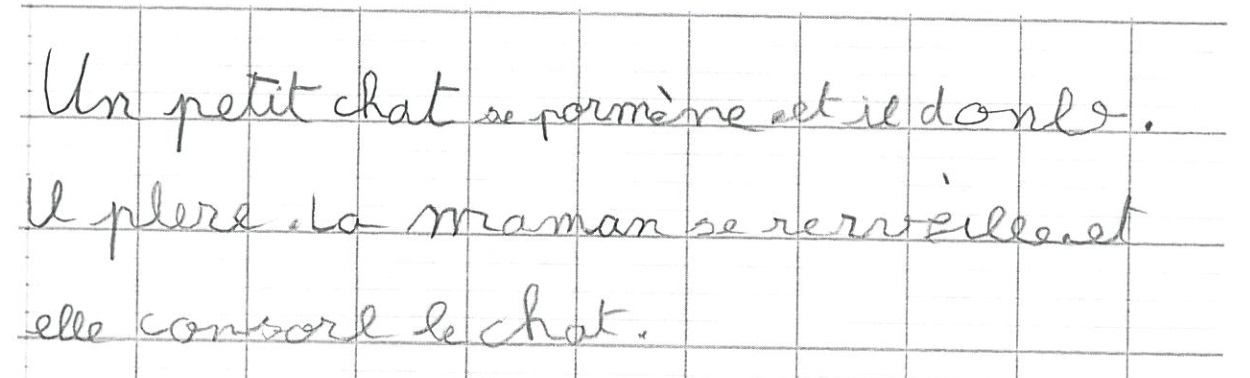 Un petit chat se pormène et il donle.
Il plere. La maman se rervèille et
elle consorl le chat.